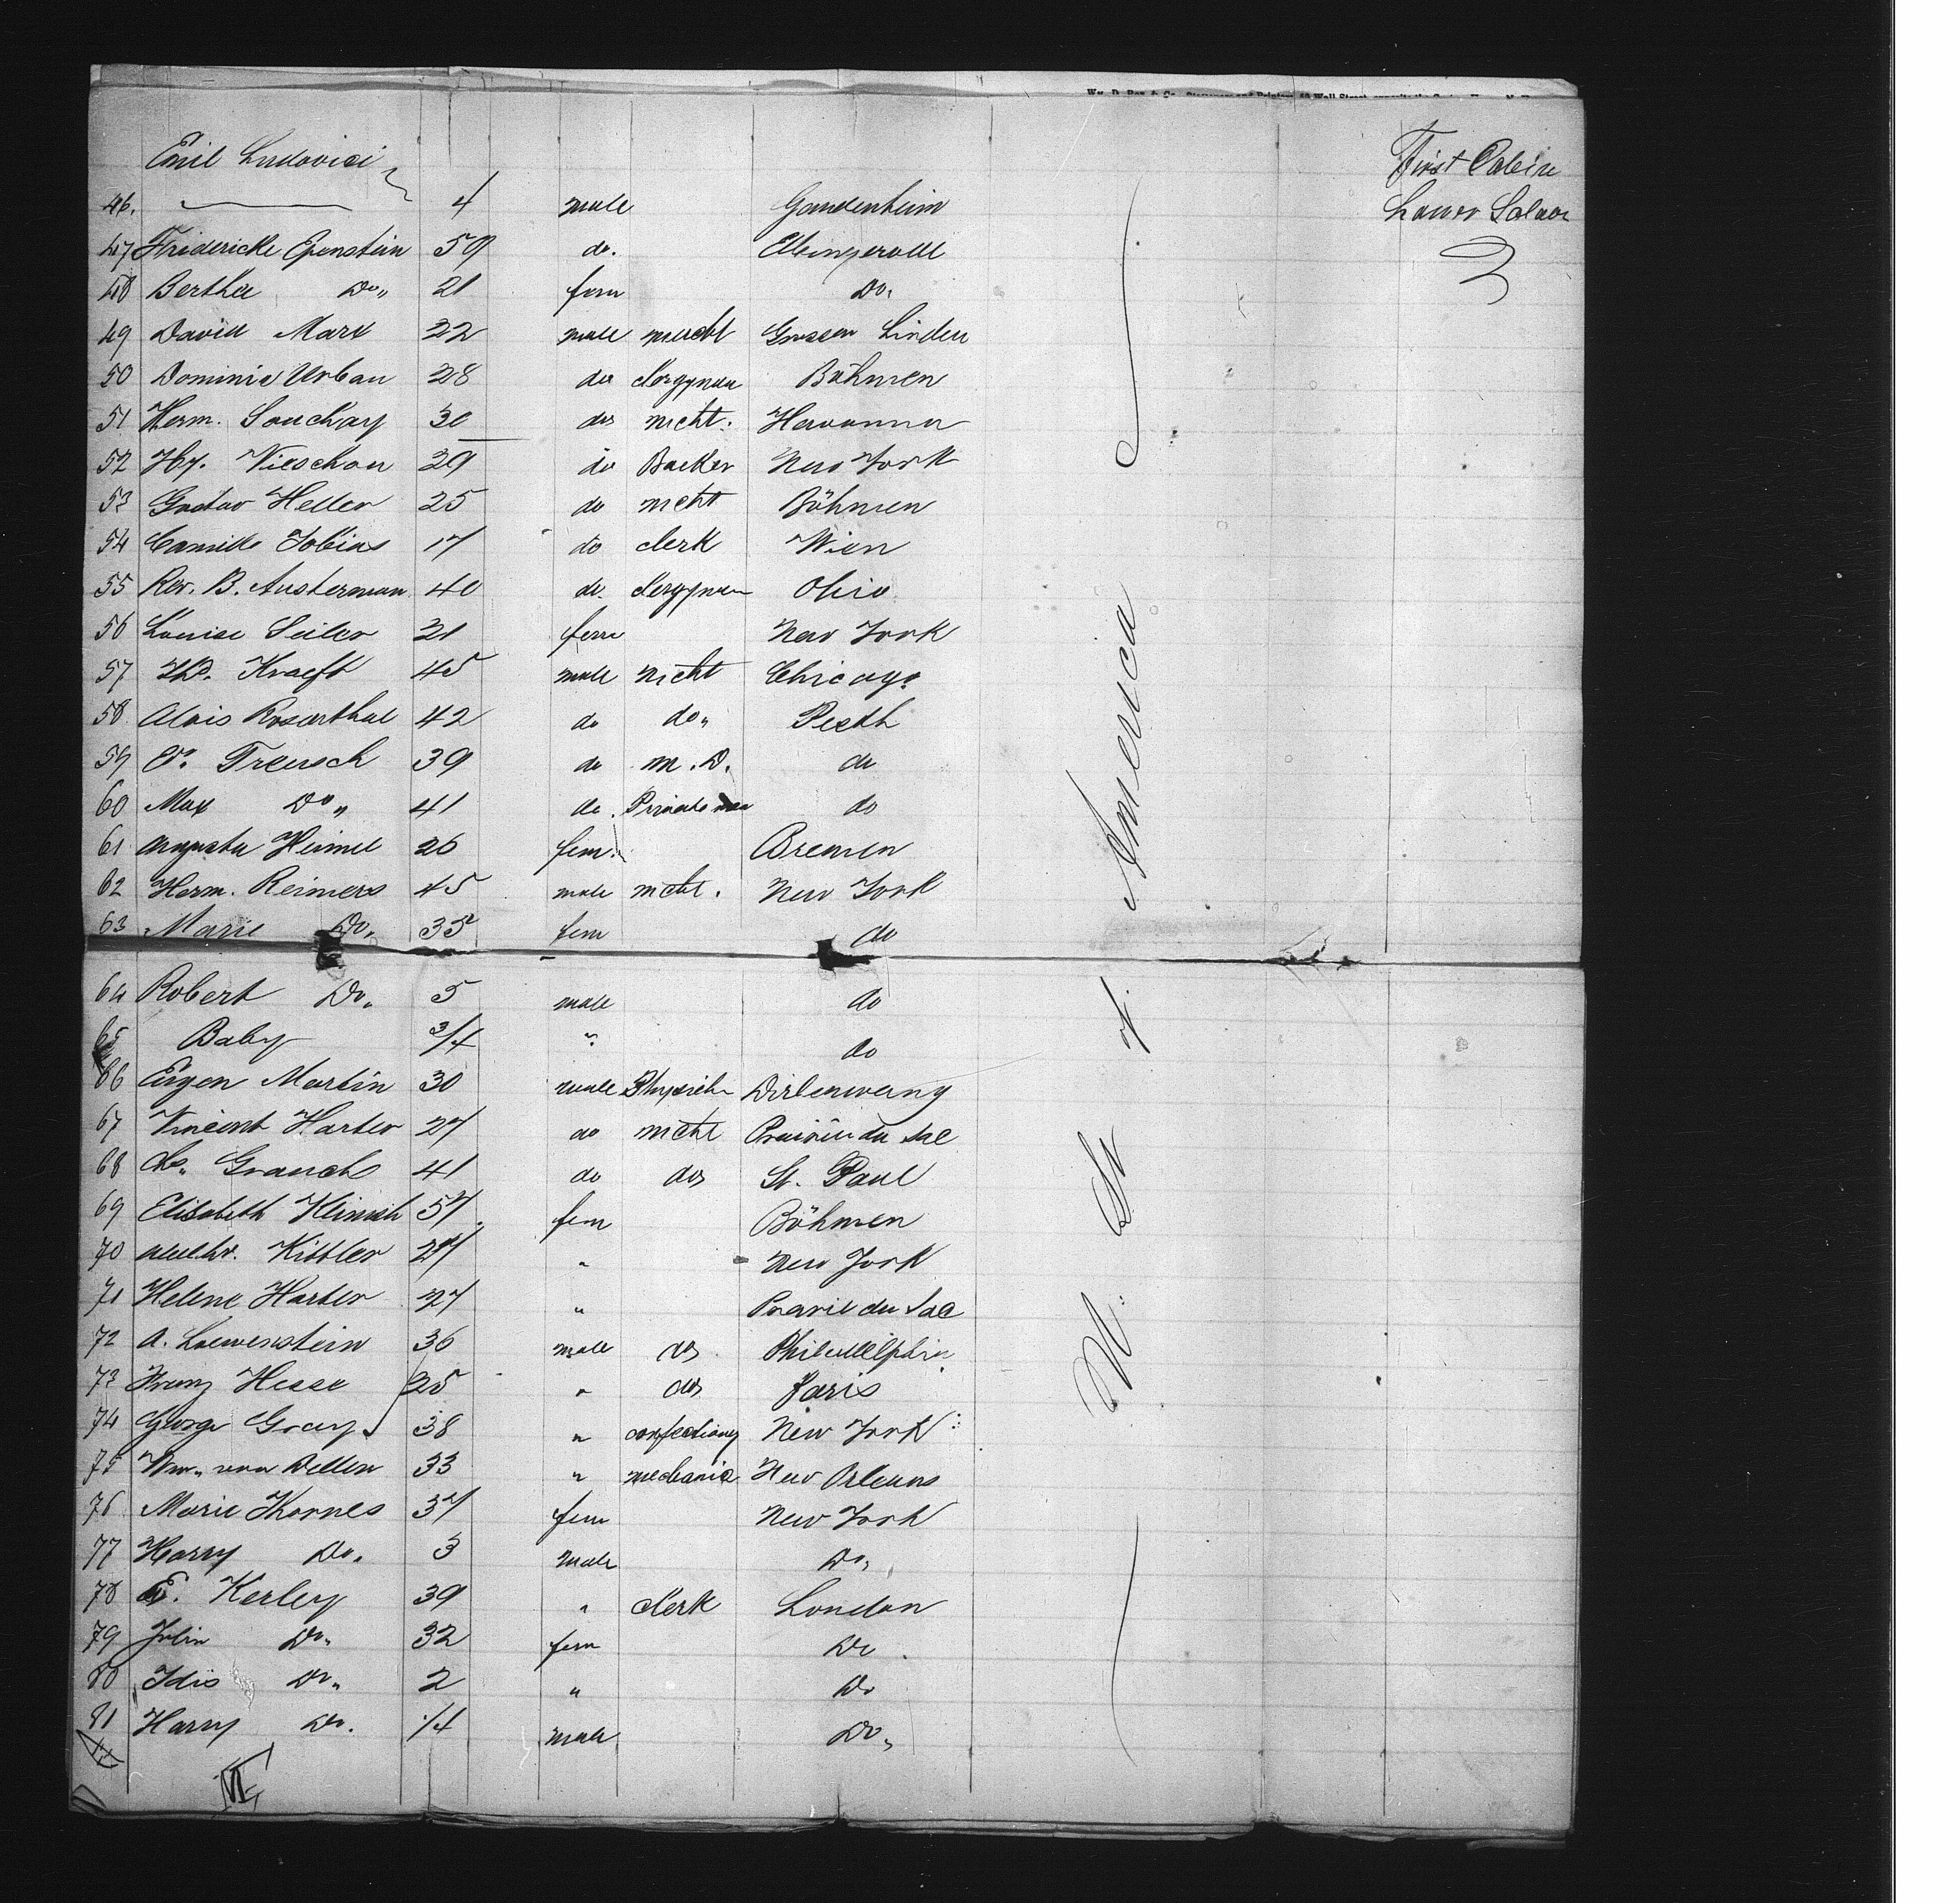 Emil Ludovici
First Cabin
46. 4 male Gandenheim
Lower Saloon
47 Fridericke Epenstein 59 do.
48 Bertha Do„ 21 fem Do.
49 David Marx 22 male mercht Grossen Linden
50 Dominic Urban 28 do clergyman Böhmen
51 Herm. Souchay 30 do mcht. Havanna
52 Hy. Vieschou 29 do Backer New York
53 Gustav Heller 25 do mcht Böhmen
54 Camille Tobias 17 do clerk Wien
55 Rev. B. Austerman 40 do. clergyman Ohio
56 Louise Seiler 21 fem New York
57 Th. Kraeft 45 male mcht Chicago
58 Alois Rosenthal 42 do do„ Pesth
59 Treusch 39 do M.D. do
60 Max Do„ 41 do. Private man do
61 Augusta Heimel 26 fem. Bremen
62 Herm. Reimers 45 male mcht. New York
63 Marie Do. 35 fem do
64 Robert Do. 5 male do
65 Baby 3/4 " do
66 Eugen Martin 30 male Dirlenwang
67 Vincent Harter 27 do mcht Prairie du Sac
68 41 do do St. Paul
69 Elisabeth Klimsh 57 fem Böhmen
70 Kittler 27 " New York
71 Helene Harter 27 " Prarie du Sac
72 A. Loewenstein 36 male do Philadelphia
73 Franz Hesse 25 " do Paris
74 George Gray 38 " confectioner New York
75 Wm. von Dellen 33 " mechanic New Orleans
76 Marie Kornes 37 fem New York
77 Harry Do. 3 male Do.
78 E. Kerley 39 " clerk London
79 Julia Do. 32 fem Do
80 Idis Do. 2 " Do
81 Harry Do. 1/4 male Do.
U. St. of America